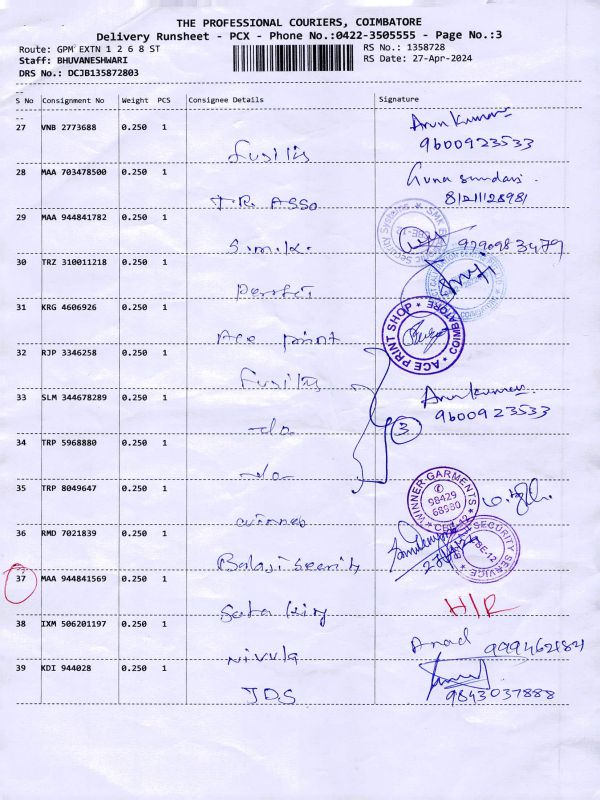 THE PROFESSIONAL COURIERS, COIMBATORE
Delivery Runsheet - PCX - Phone No.:0422-3505555 - Page No.:3
Route: GPM EXTN 1 2 6 8 ST
RS No.: 1358728
Staff: BHUVANESHWARI
RS Date: 27-Apr-2024
DRS No.: DCJB135872803
S No Consignment No Weight PCS Consignee Details Signature
27 VNB 2773688 0.250 1 Arun Kumar
9600923533
28 MAA 703478500 0.250 1 Guna Sundari
T.R. ASSO
29 MAA 944841782 0.250 1
9790983479
30 TRZ 310011218 0.250 1
31 KRG 4606926 0.250 1
Ace print
ACE PRINT SHOP * COIMBATORE *
32 RJP 3346258 0.250 1
33 SLM 344678289 0.250 1 Arun Kumar
9600923533
-do
3
34 TRP 5968880 0.250 1
-do
35 TRP 8049647 0.250 1
WINNER GARMENTS
98429
68980
winner
36 RMD 7021839 0.250 1
Balaji Security
SECURITY SERVICE
37 MAA 944841569 0.250 1 H/R
38 IXM 506201197 0.250 1 Anad
9994621821
39 KDI 944028 0.250 1
9843037888
JDS